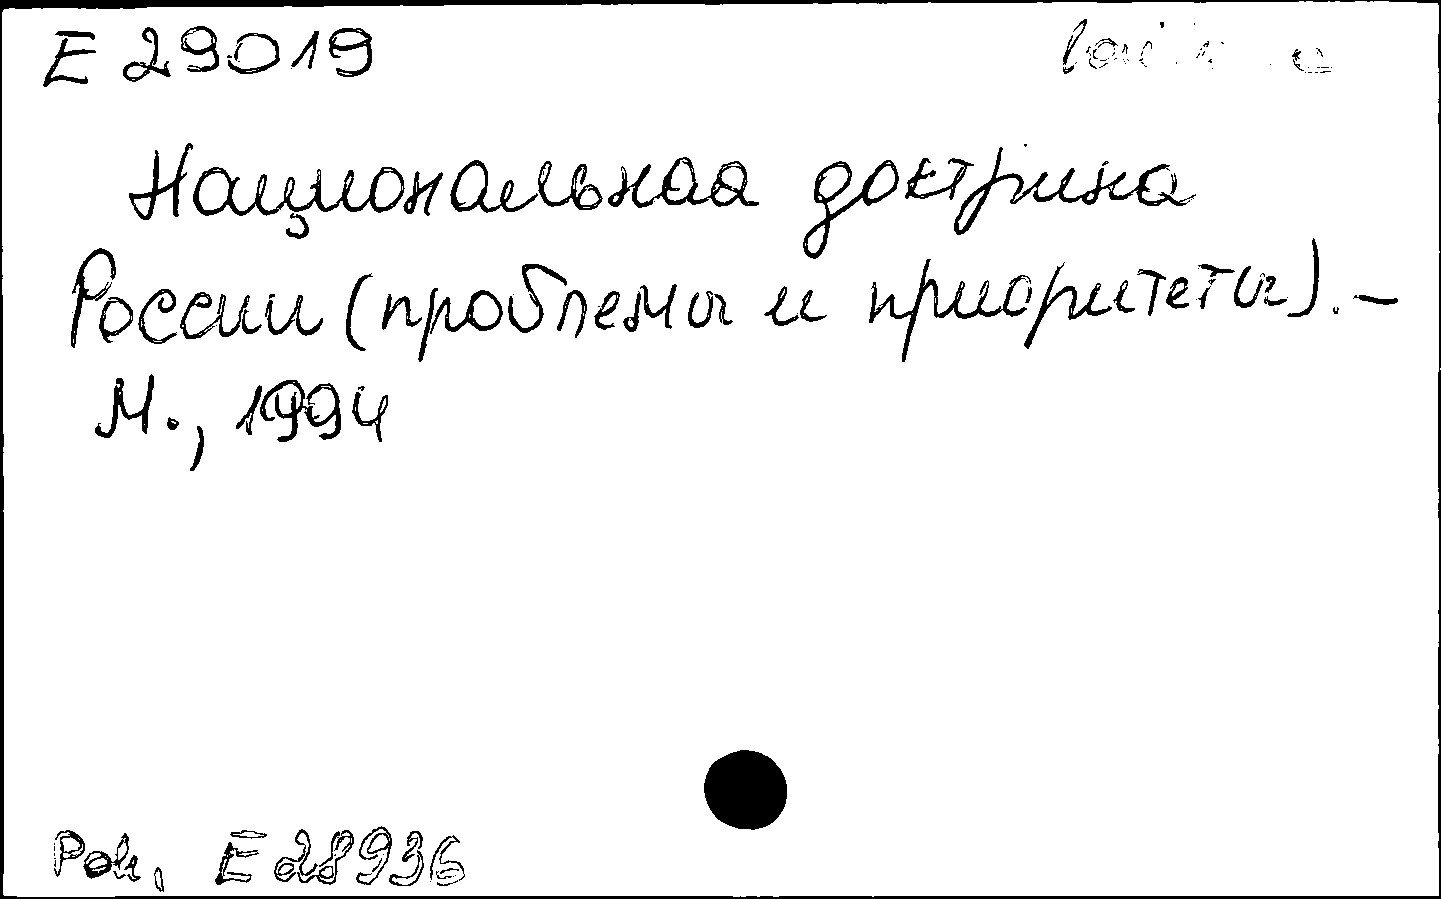 E 29019
Национальная доктрина
России (проблемы и приоритеты). –
М., 1994
E 28936